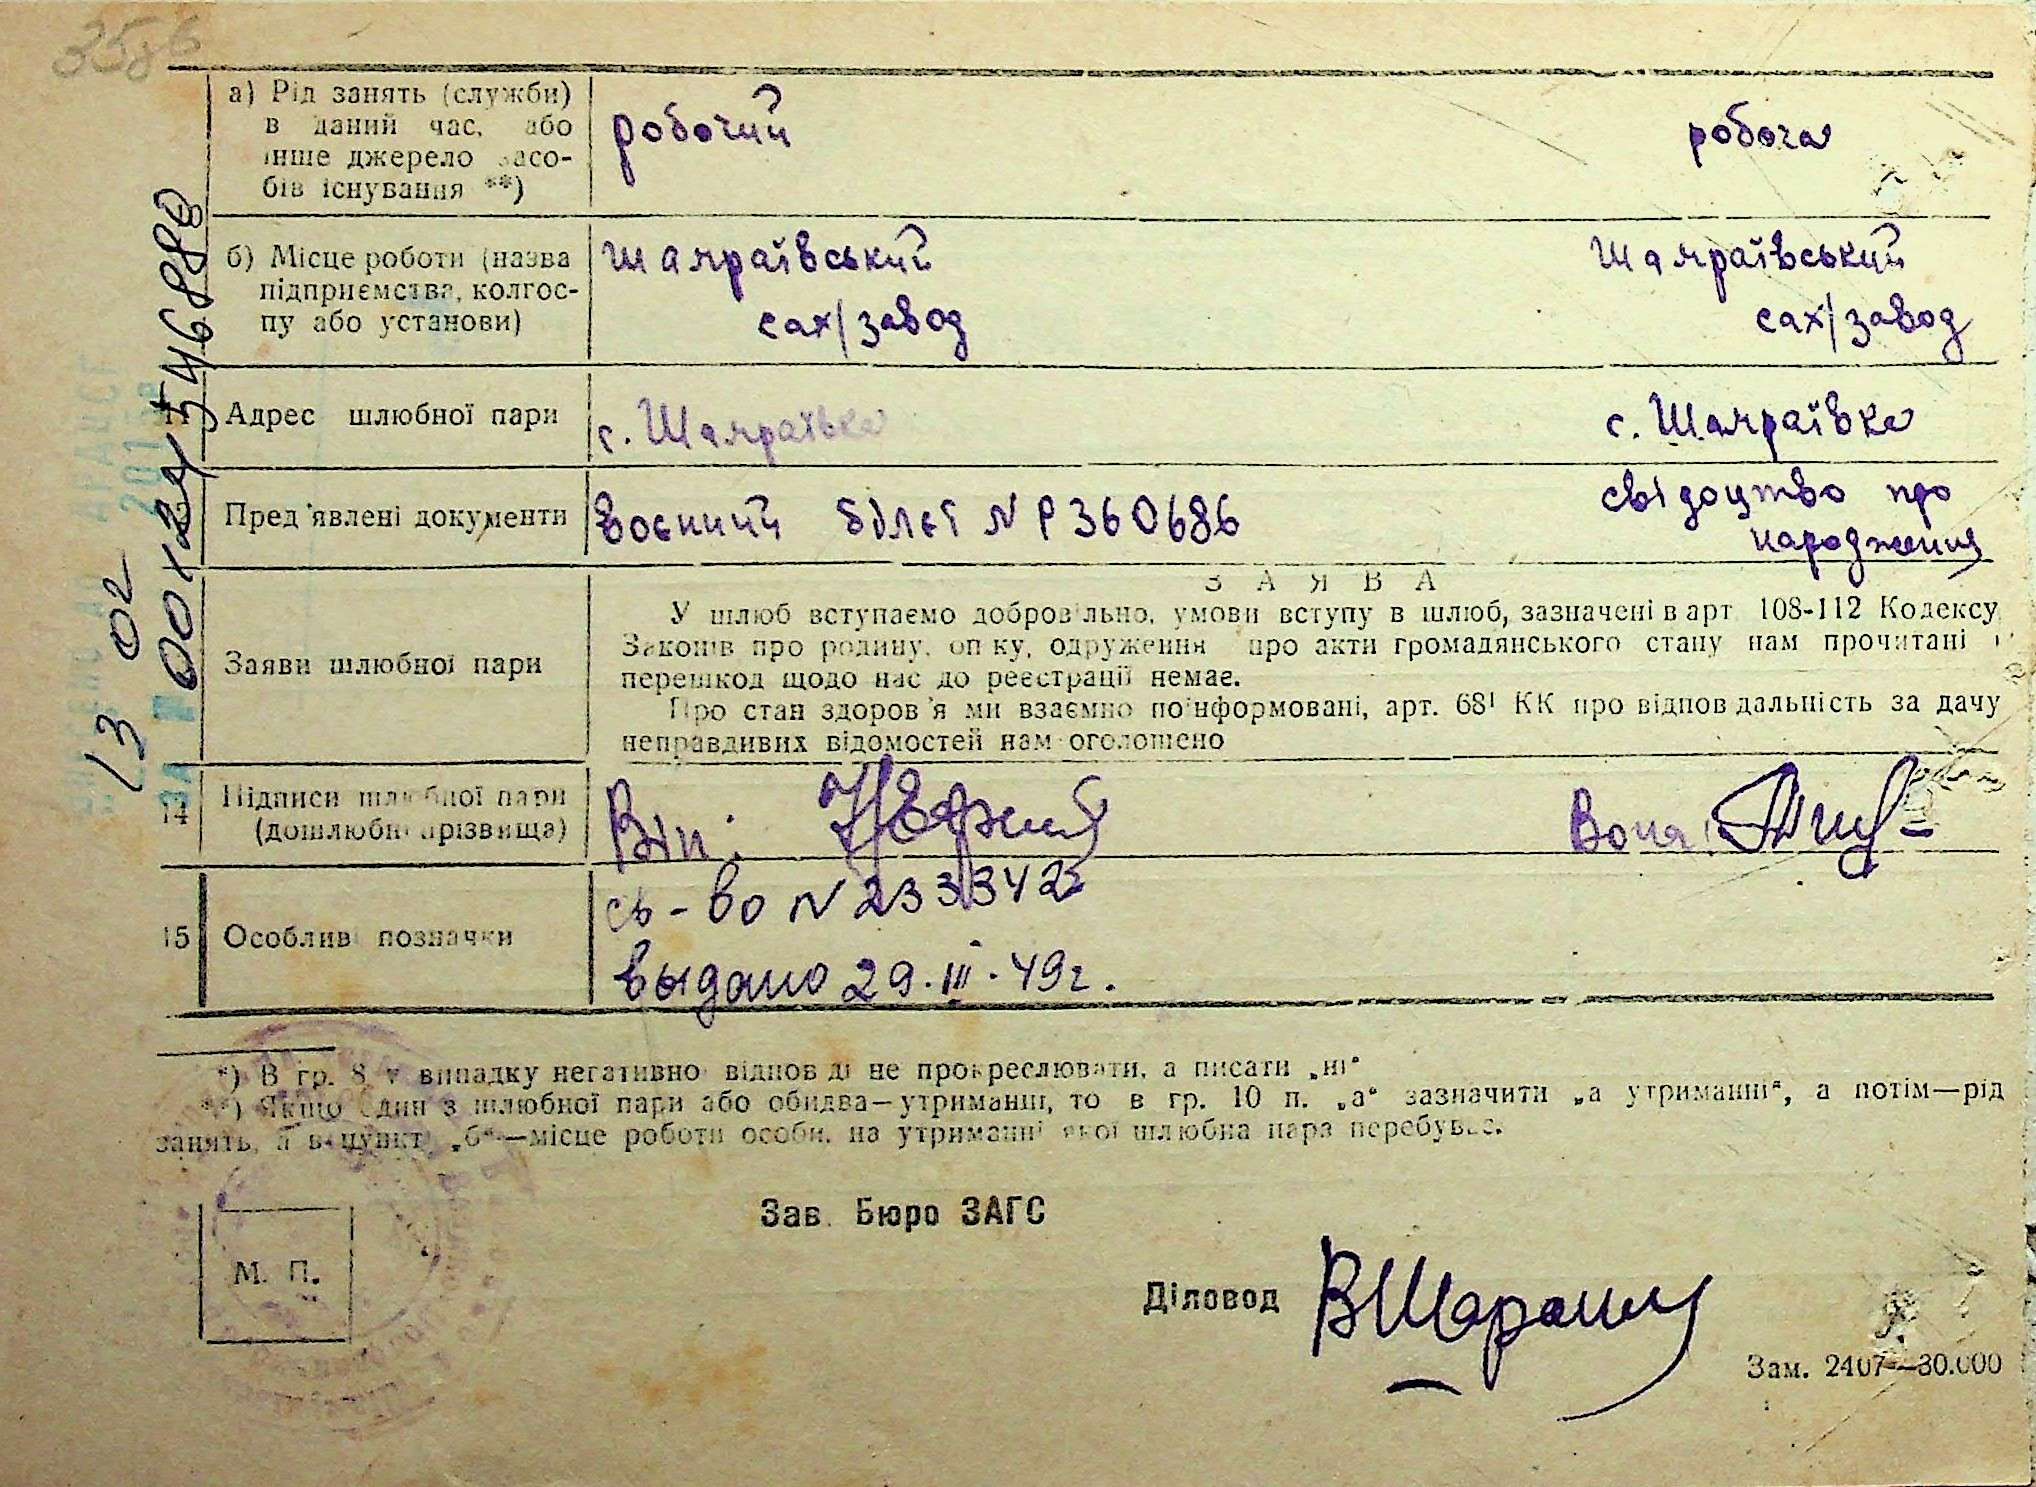 а) Рід занять (служби)
в даний час, або
інше джерело засо-
бів існування **)
робочий
робоча
б) Місце роботи (назва
підприємства, колгос-
пу або установи)
Шамраївський
сах/завод
Шамраївський
сах/завод
11 Адрес шлюбної пари
с. Шамраївка
с. Шамраївка
Пред'явлені документи
воєнний білєт № Р 360686
свідоцтво про
народження
Заяви шлюбної пари
ЗАЯВА
У шлюб вступаємо добровільно, умови вступу в шлюб, зазначені в арт 108-112 Кодексу
Законів про родину, опіку, одруження про акти громадянського стану нам прочитані і
перешкод щодо нас до реєстрації немає.
Про стан здоров'я ми взаємно поінформовані, арт. 68¹ КК про відповідальність за дачу
неправдивих відомостей нам оголошено
14 Підписи шлюбної пари
(дошлюбні прізвища)
Він:
Вона:
15 Особливі позначки
св-во № 233342
выдано 29.III.49г.
*) В гр. 8 у випадку негативної відповіді не прокреслювати, а писати „ні“
**) Якщо один з шлюбної пари або обидва—утриманці, то в гр. 10 п. „а“ зазначити „а утриманні“, а потім—рід
занять, а в пункті „б“—місце роботи особи, на утриманні якої шлюбна пара перебуває.
Зав. Бюро ЗАГС
М. П.
Діловод
Зам. 2407—30.000
13 02
546888